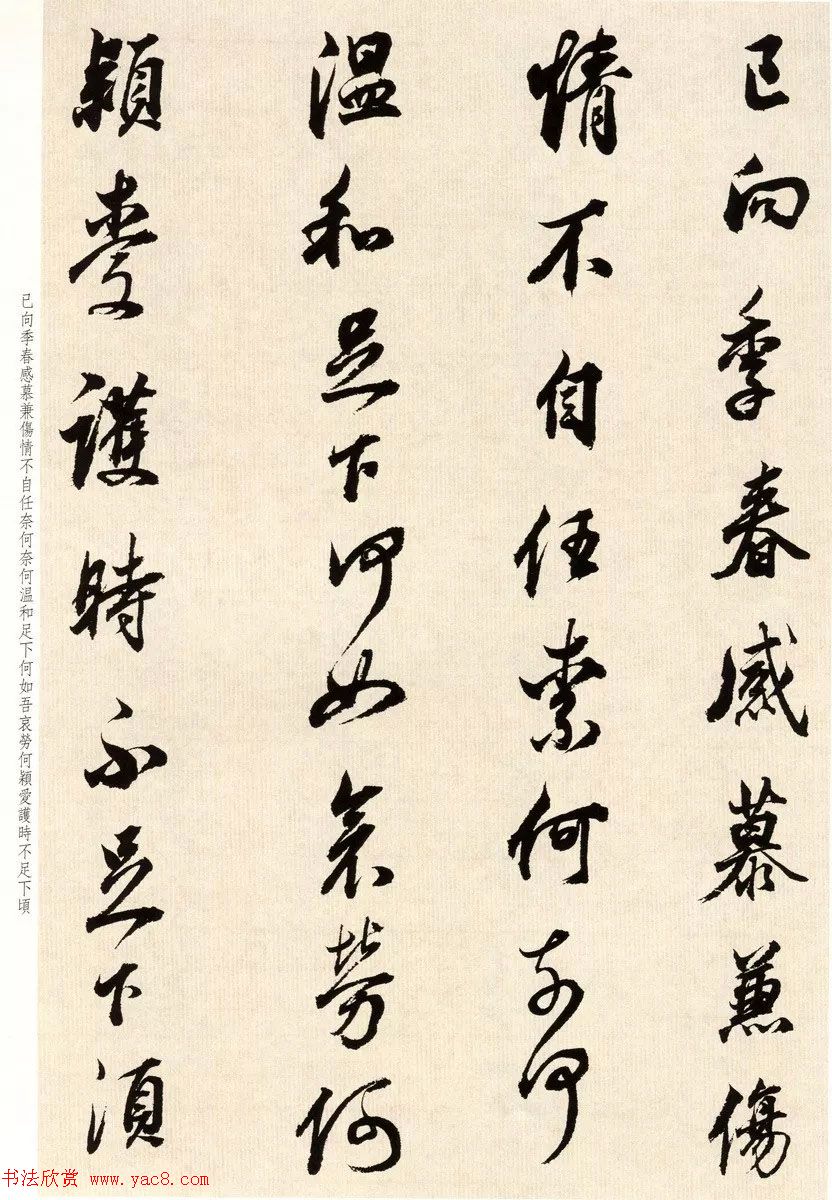 已向季春感慕兼傷
情不自任奈何奈何
温和足下何如哀勞何
穎愛護時不足下湏
已向季春感慕兼傷情不自任奈何奈何温和足下何如吾哀勞何穎愛護時不足下頃
书法欣赏 www.yac8.com